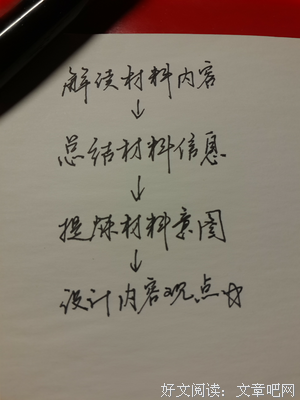 解读材料内容
↓
总结材料信息
↓
提炼材料意图
↓
设计内容观点
好文阅读：文章吧网